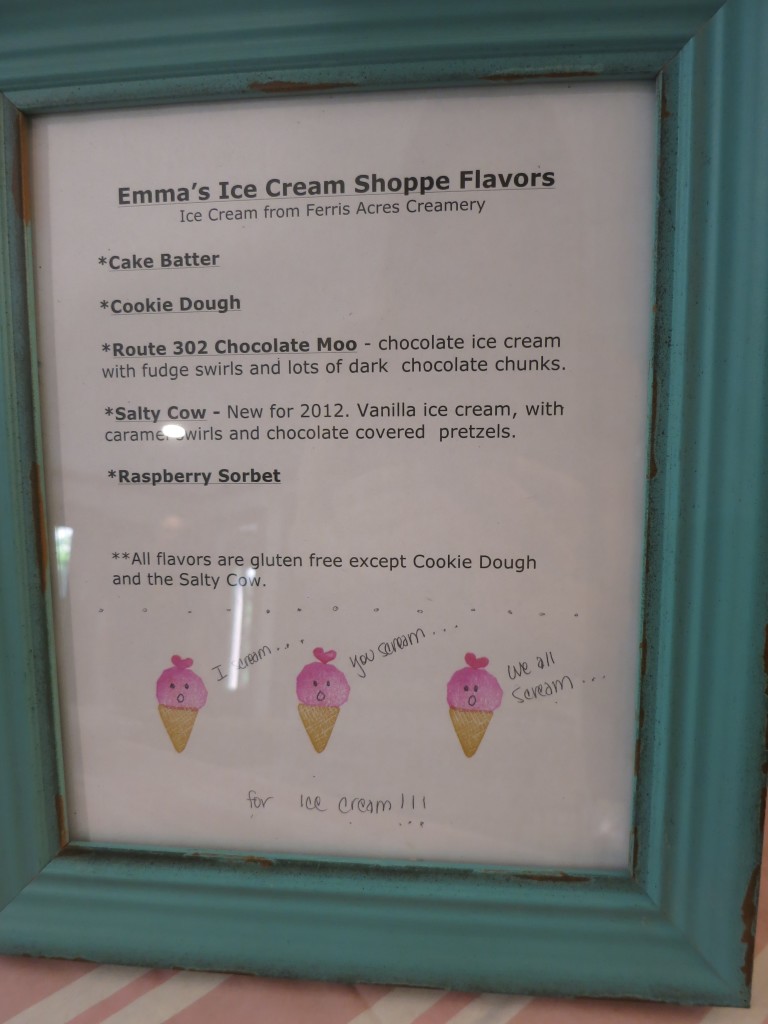 Emma's Ice Cream Shoppe Flavors
Ice Cream from Ferris Acres Creamery
*Cake Batter
*Cookie Dough
*Route 302 Chocolate Moo - chocolate ice cream
with fudge swirls and lots of dark chocolate chunks.
*Salty Cow - New for 2012. Vanilla ice cream, with
caramel swirls and chocolate covered pretzels.
*Raspberry Sorbet
**All flavors are gluten free except Cookie Dough
and the Salty Cow.
I scream...
you scream...
we all
scream...
for ice cream!!!